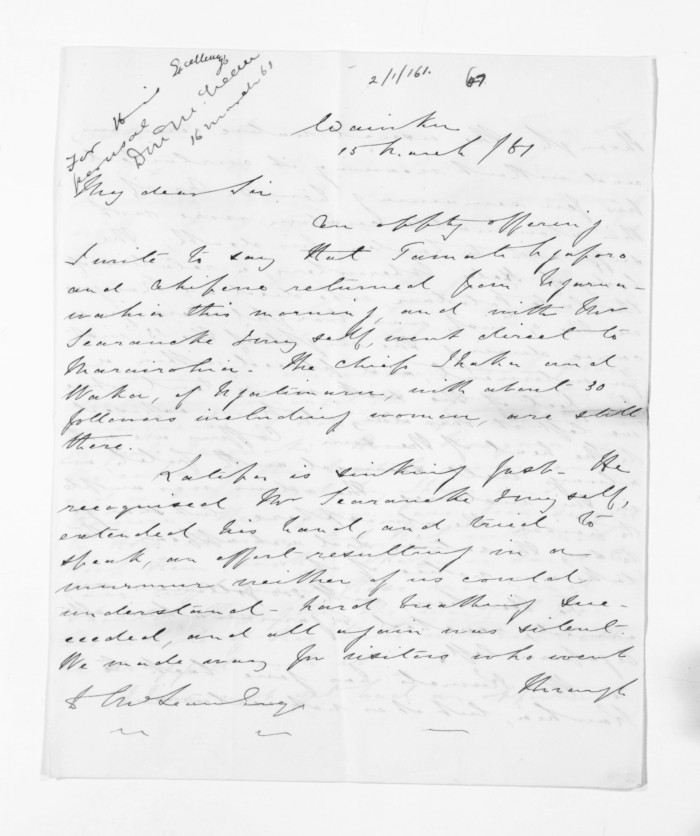 For His Excellency's
perusal
Donald McLean
16 March 61
2/1/161.
67
Waiuku
15 March /61
My dear Sir.
An oppty offering
I write to say that Tamati Ngaporo
and Chepene returned from Ngarua-
wahia this morning, and with Mr
Searancke & myself, went direct to
Marairohia. The Chiefs Ihaka and
Waka, of Ngatimaru, with about 30
followers including women, are still
there.
Katipa is sinking fast. He
recognised Mr Searancke & myself,
extended his hand, and tried to
speak, an effort resulting in a
murmur neither of us could
understand - hard breathing suc-
ceeded, and all again was silent.
We made way for visitors who went
through
D McLean Esqr